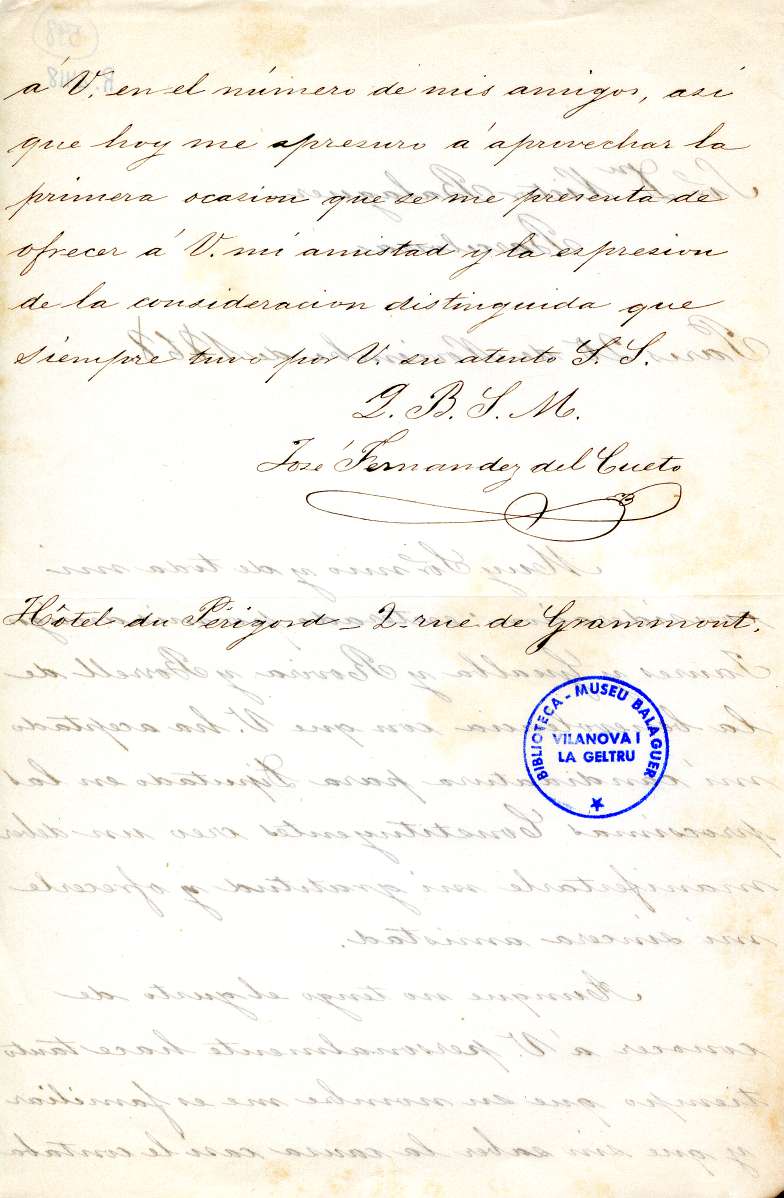 á V. en el número de mis amigos, asi
que hoy me apresuro á aprovechar la
primera ocasion que se me presenta de
ofrecer á V. mi amistad y la espresion
de la consideracion distinguida que
siempre tuvo por V. su atento S. S.
Q. B. S. M.
José Fernandez del Cueto
Hôtel du Périgord - 2 - rue de Grammont.
BIBLIOTECA - MUSEU BALAGUER
VILANOVA I
LA GELTRU